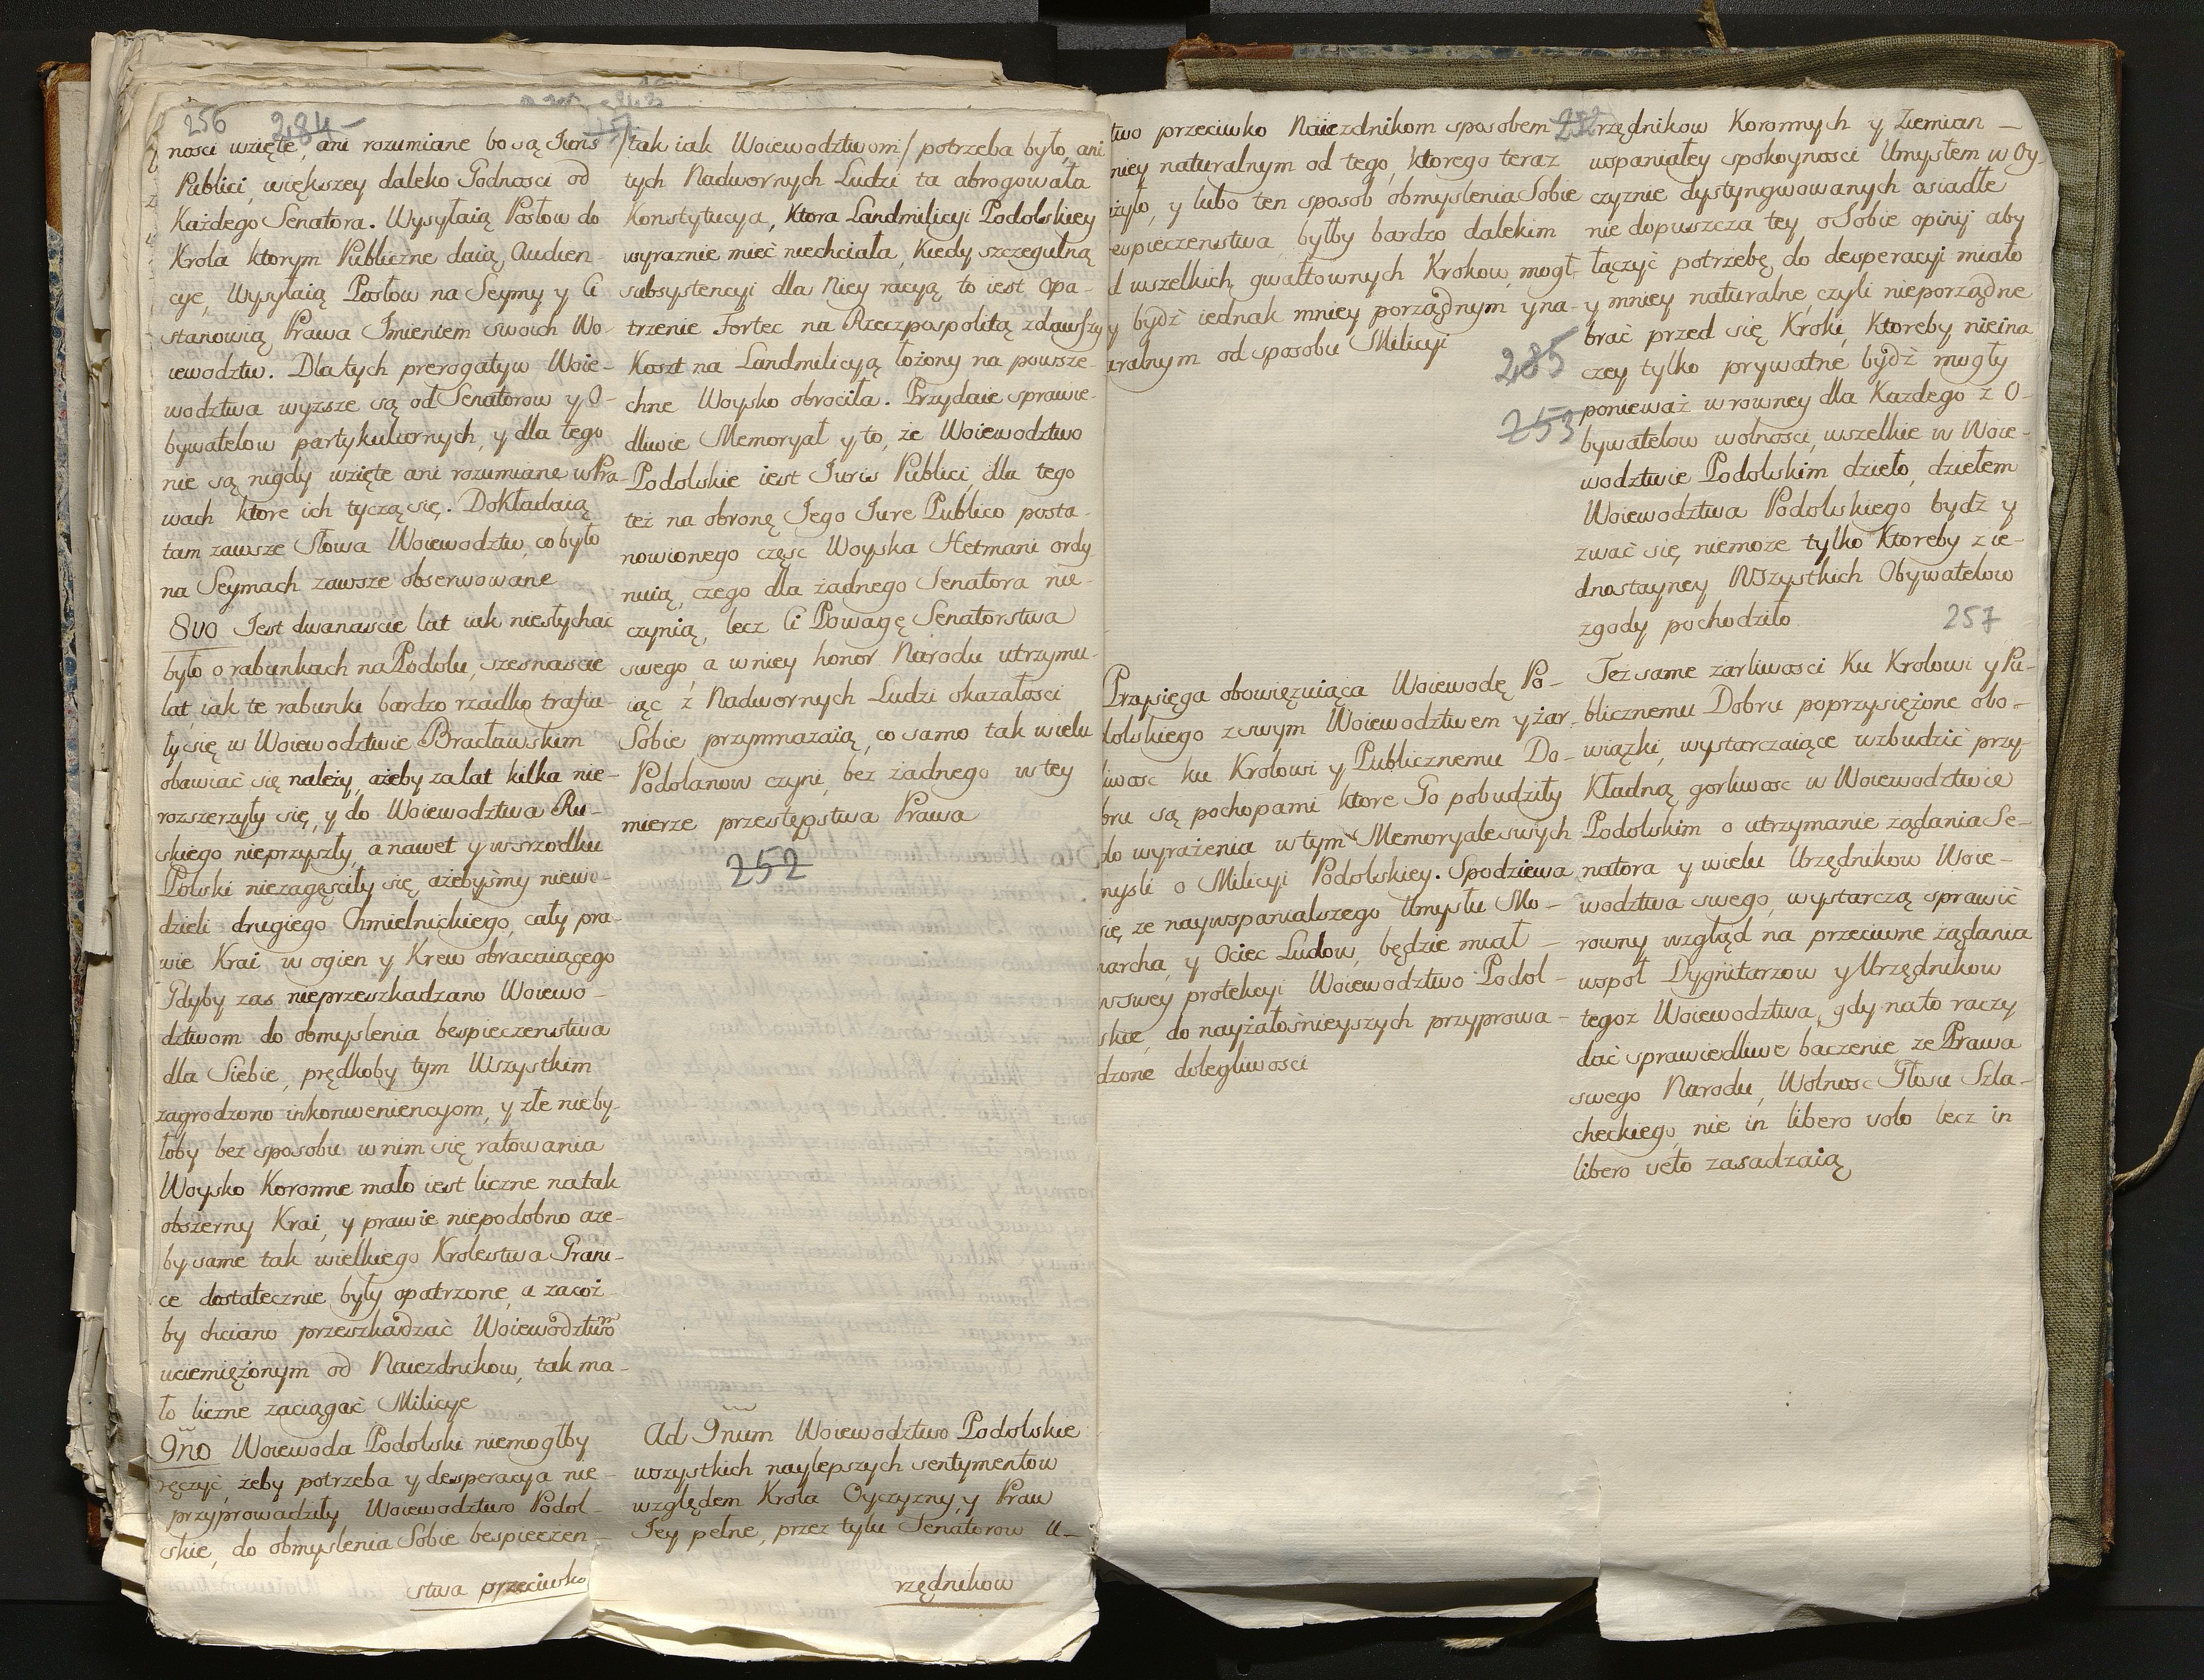 256
284
nosci wzięte, ani rozumiane bo są Juris
Publici, większey daleko Godnosci od
Każdego Senatora. Wysyłaią Posłow do
Krola ktorym Publiczne daią Audien-
cye, Wysyłaią Posłow na Seymy y Ci
stanowią Prawa Imieniem swoich Wo-
iewodztw. Dla tych prerogatyw Woie-
wodztwa wyzsze są od Senatorow y O-
bywatelow partykularnych, y dla tego
nie są nigdy wzięte ani rozumiane w Pra-
wach ktore ich tyczą się. Dokładaią
tam zawsze Słowa Woiewodztw, co było
na Seymach zawsze obserwowane
8vo Jest dwanascie lat iak niesłychać
było o rabunkach na Podolu, szesnascie
lat iak te rabunki bardzo rzadko trafia-
ły się w Woiewodztwie Bracławskim
obawiać się należy, ażeby za lat kilka nie-
rozszerzyły się, y do Woiewodztwa Ru-
skiego nieprzyszły, a nawet y w srzodku
Polski niezagęsciły się, ażebyśmy niewi-
dzieli drugiego Chmielnickiego, cały pra-
wie Krai w ogien y Krew obracaiącego
Gdyby zas nieprzeszkadzano Woiewo-
dztwom do obmyslenia bespieczenstwa
dla Siebie, prędkoby tym Wszystkim
zagrodzono inkonweniencyom, y złe nieby-
łoby bez sposobu w nim się ratowania
Woysko Koronne mało iest liczne na tak
obszerny Krai, y prawie niepodobno aże-
by same tak wielkiego Krolestwa Grani-
ce dostatecznie były opatrzone, a zacoż-
by chciano przeszkadzać Woiewodztwom
uciemiężonym od Naiezdnikow, tak ma-
ło liczne zaciągać Milicye
9no Woiewoda Podolski niemogłby
ręczyć, żeby potrzeba y desperacya nie-
przyprowadziły Woiewodztwo Podol-
skie, do obmyslenia Sobie bespieczen-
stwa przeciwko
/tak iak Woiewodztwom/ potrzeba było, ani
tych Nadwornych Ludzi ta abrogowała
Konstytucya, ktora Landmilicyi Podolskiey
wyraznie mieć niechciała, Kiedy szczegulną
subsystencyi dla Niey racyą to iest Opa-
trzenie Fortec na Rzeczpospolitą zdawszy
Koszt na Landmilicyą łożony na powsze-
chne Woysko obrociła. Przydaie sprawie-
dliwie Memoryał y to, że Woiewodztwo
Podolskie iest Juris Publici, dla tego
też na obronę Jego Jure Publico posta-
nowionego częsc Woyska Hetmani ordy
nuią, czego dla żadnego Senatora nie-
czynią, lecz Ci Powagę Senatorstwa
swego, a w niey honor Narodu utrzymu-
iąc z Nadwornych Ludzi okazałosci
Sobie przymnażaią, co samo tak wielu
Podolanow czyni, bez żadnego w tey
mierze przestępstwa Prawa
252
Ad 9num Woiewodztwo Podolskie
wszystkich naylepszych sentymentow
względem Krola Oyczyzny, y Praw
Jey pełne, przez tylu Senatorow U-
rzędnikow
two przeciwko Naiezdnikom sposobem
niey naturalnym od tego, ktorego teraz
żyło, y lubo ten sposob obmyslenia Sobie
espieczenstwa, byłby bardzo dalekim
d wszelkich gwałtownych Krokow, mogł-
y bydź iednak mniey porządnym y na-
uralnym od sposobu Milicyi
285
253
Przysięga obowięzuiąca Woiewodę Po-
dolskiego z swym Woiewodztwem y żar-
liwosc ku Krolowi y Publicznemu Do-
bru są pochopami ktore Go pobudziły
do wyrażenia w tym Memoryale swych
mysli o Milicyi Podolskiey. Spodziewa
się, ze naywspanialszego Umysłu Mo-
narcha, y Ociec Ludow, będzie miał
w swey protekcyi Woiewodztwo Podol-
skie, do nayżałośnieyszych przyprowa-
dzone dolegliwosci
252
rzędnikow Koronnych y Ziemian
wspaniałey spokoynosci Umysłem w Oy-
czyznie dystyngwowanych osiadłe
nie dopuszcza tey o Sobie opinij aby
łączyć potrzebę do desperacyi miało
y mniey naturalne, czyli nieporządne
brać przed się Kroki, ktoreby nieina
czey tylko prywatne bydź mogły
ponieważ w rowney dla Każdego z O-
bywatelow wolnosci, wszelkie w Woie-
wodztwie Podolskim dzieło, dziełem
Woiewodztwa Podolskiego bydź y
zwać się niemoże tylko ktoreby z ie-
dnostayney Wszystkich Obywatelow
zgody pochodziło
257
Też same żarliwosci Ku Krolowi y Pu-
blicznemu Dobru poprzysiężone obo-
wiązki, wystarczaiące wzbudzić przy-
kładną gorliwosc w Woiewodztwie
Podolskim o utrzymanie żądania Se-
natora y wielu Urzędnikow Woie-
wodztwa swego, wystarczą sprawić
rowny wzgląd na przeciwne żądania
wspoł Dygnitarzow y Urzędnikow
tegoż Woiewodztwa, gdy na to raczy
dać sprawiedliwe baczenie, ze Prawa
swego Narodu, Wolnosc Głosu Szla-
checkiego, nie in libero volo lecz in
libero veto zasadzaią